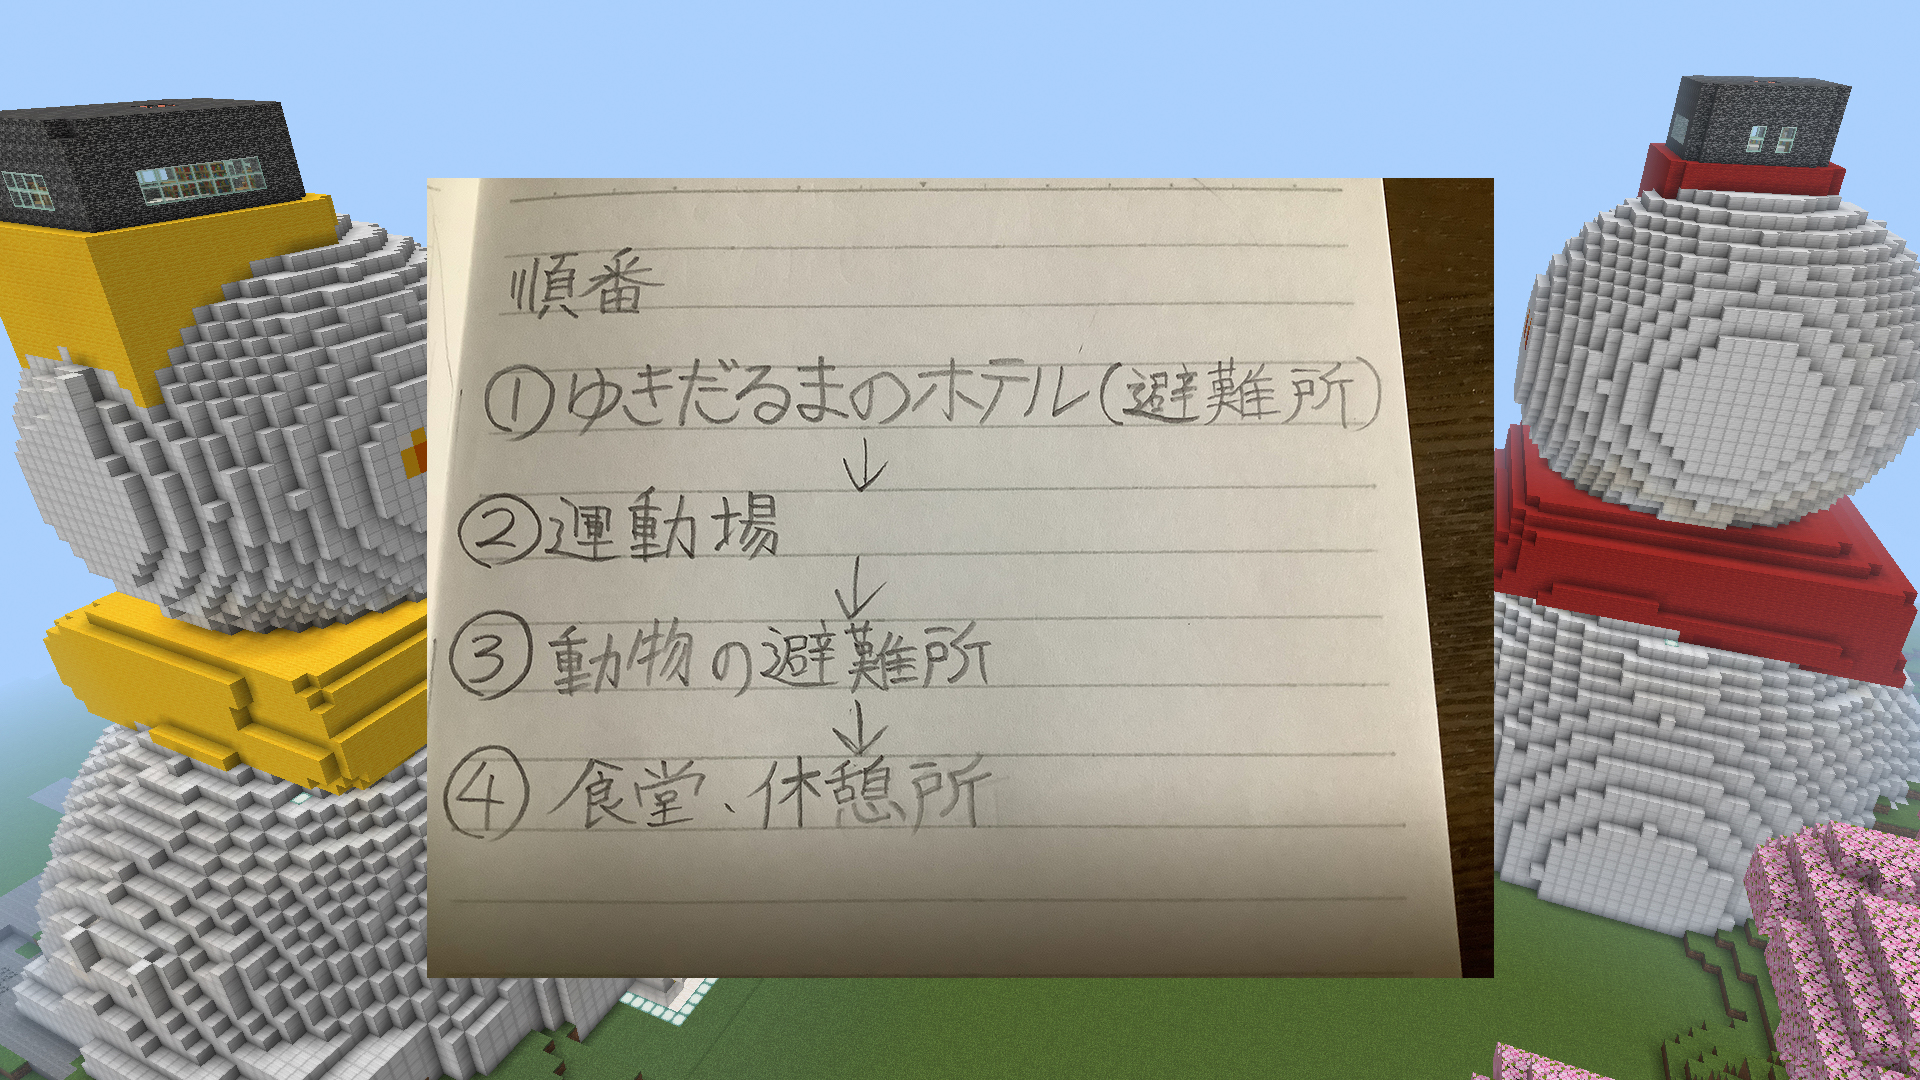 順番
①ゆきだるまのホテル(避難所)
↓
②運動場
↓
③動物の避難所
↓
④食堂、休憩所